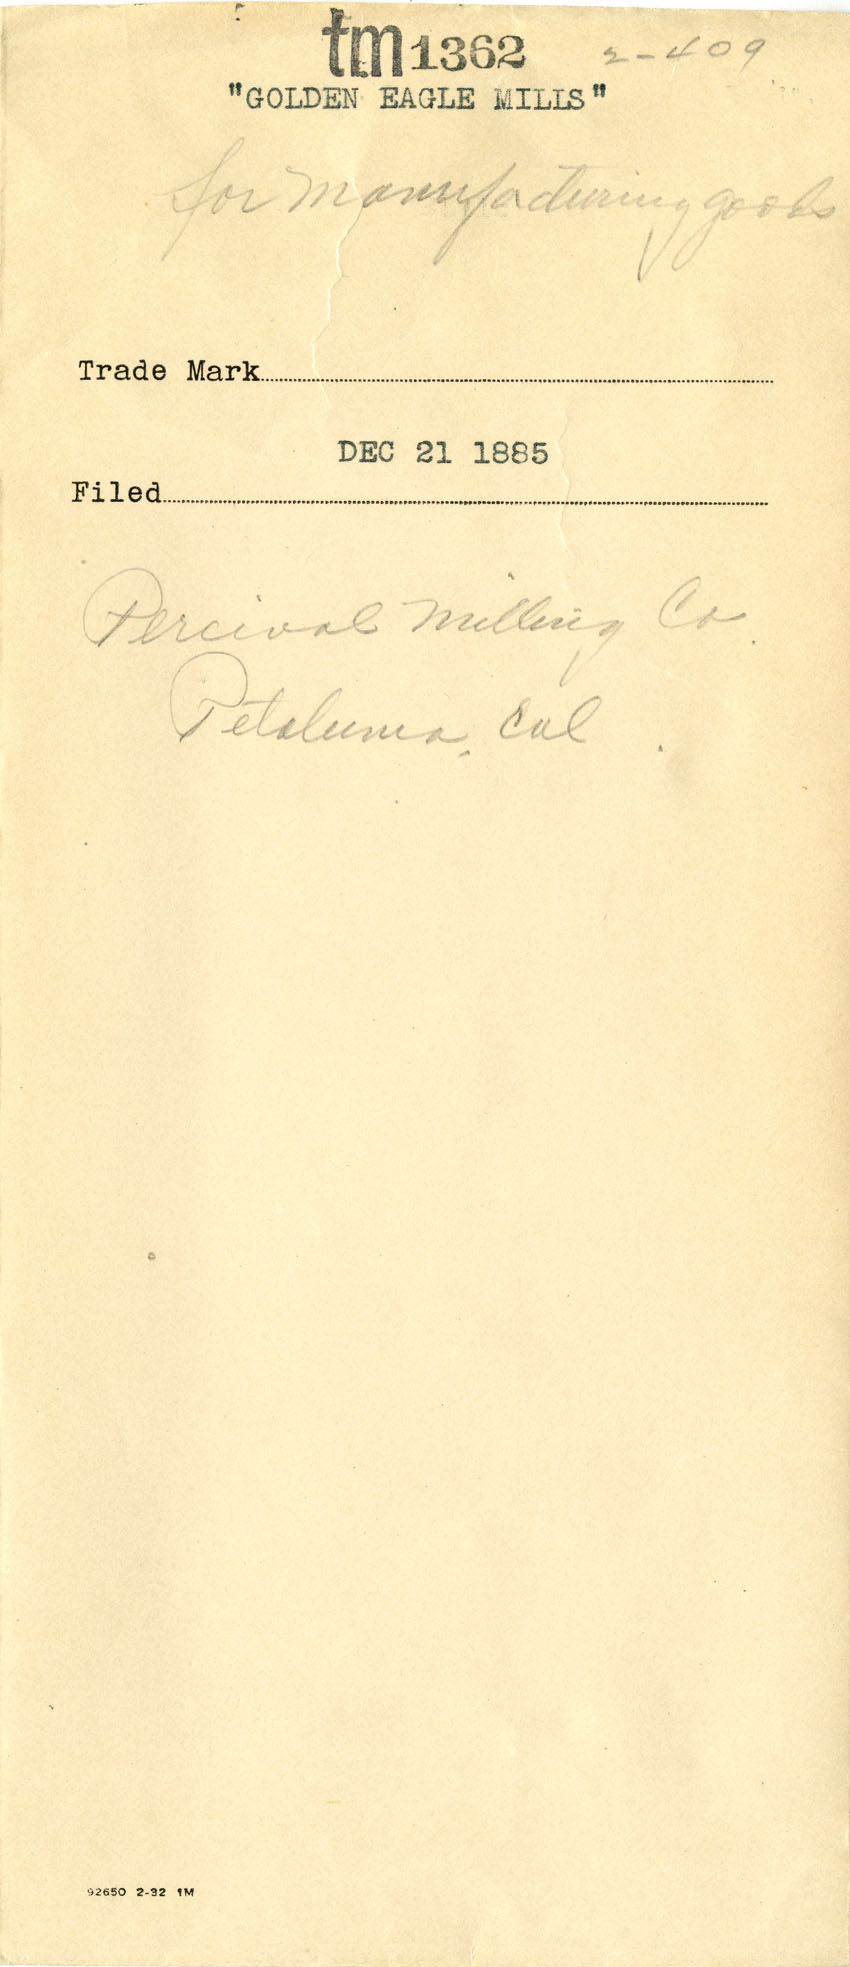 tm 1362 2-409
"GOLDEN EAGLE MILLS"
for manufacturing goods
Trade Mark
DEC 21 1885
Filed
Percival Milling Co.
Petaluma, Cal
92650 2-32 1M